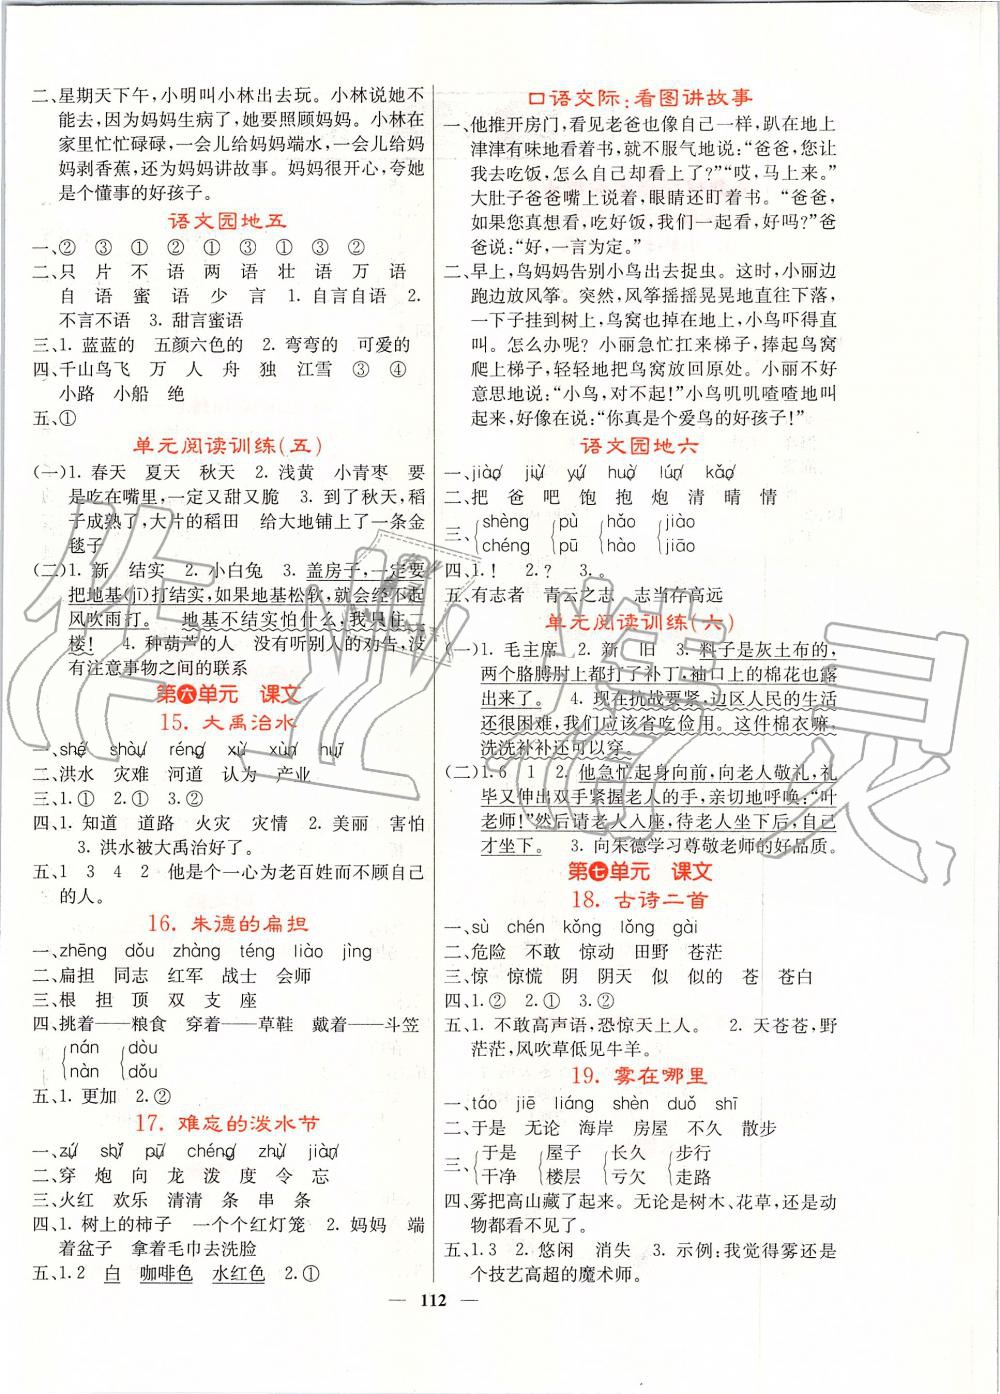 二、星期天下午，小明叫小林出去玩。小林说她不
能去，因为妈妈生病了，她要照顾妈妈。小林在
家里忙忙碌碌，一会儿给妈妈端水，一会儿给妈
妈剥香蕉，还为妈妈讲故事。妈妈很开心，夸她
是个懂事的好孩子。
语文园地五
一、② ③ ① ② ① ③ ① ③ ②
二、只 片 不 语 两 语 壮 语 万 语
自 语 蜜 语 少 言 1. 自言自语 2.
不言不语 3. 甜言蜜语
三、1. 蓝蓝的 五颜六色的 2. 弯弯的 可爱的
四、千山鸟飞 万 人 舟 独 江雪 ③ ④
小路 小船 绝
五、①
单元阅读训练(五)
(一)1. 春天 夏天 秋天 2. 浅黄 小青枣 要
是吃在嘴里，一定又甜又脆 3. 到了秋天，稻
子成熟了，大片的稻田 给大地铺上了一条金
毯子
(二)1. 新 结实 2. 小白兔 3. 盖房子，一定要
把地基(jī)打结实，如果地基松软，就会经不起
风吹雨打。 地基不结实怕什么，我只住一
楼！ 4. 种葫芦的人 没有听别人的劝告，没
有注意事物之间的联系
第六单元 课文
15. 大禹治水
一、shé shòu réng xù xùn huǐ
二、洪水 灾难 河道 认为 产业
三、1.① 2.① 3.②
四、1. 知道 道路 火灾 灾情 2. 美丽 害怕
3. 洪水被大禹治好了。
五、1 3 4 2 他是个一心为老百姓而不顾自己
的人。
16. 朱德的扁担
一、zhēng dǒu zhàng téng liào jìng
二、扁担 同志 红军 战士 会师
三、根 担 顶 双 支 座
四、挑着——粮食 穿着——草鞋 戴着——斗笠
nán dòu
nàn dǒu
五、1. 更加 2.②
17. 难忘的泼水节
一、zú shǐ pū chéng zhù jiàn
二、穿 炮 向 龙 泼 度 令 忘
三、火红 欢乐 清清 条 串 条
四、1. 树上的柿子 一个个红灯笼 2. 妈妈 端
着盆子 拿着毛巾去洗脸
五、1.2 白 咖啡色 水红色 2.①
口语交际：看图讲故事
一、他推开房门，看见老爸也像自己一样，趴在地上
津津有味地看着书，就不服气地说：“爸爸，您让
我去吃饭，怎么自己却看上了？”“哎，马上来。”
大肚子爸爸嘴上说着，眼睛还盯着书。“爸爸，
如果您真想看，吃好饭，我们一起看，好吗？”爸
爸说：“好，一言为定。”
二、早上，鸟妈妈告别小鸟出去捉虫。这时，小丽边
跑边放风筝。突然，风筝摇摇晃晃地直往下落，
一下子挂到树上，鸟窝也掉在地上，小鸟吓得直
叫。怎么办呢？小丽急忙扛来梯子，捡起鸟窝
爬上梯子，轻轻地把鸟窝放回原处。小丽不好
意思地说：“小鸟，对不起！”小鸟叽叽喳喳地叫
起来，好像在说：“你真是个爱鸟的好孩子！”
语文园地六
一、jiào jiù yú huò lún kǎo
二、把 爸 吧 饱 抱 炮 清 晴 情
三、shèng pù hǎo jiào
chéng pū hào jiāo
四、1.！ 2.？ 3.。
五、有志者 青云之志 志当存高远
单元阅读训练(六)
(一)1. 毛主席 2. 新 旧 3. 料子是灰土布的，
两个胳膊肘上都打了补丁，袖口上的棉花也露
出来了。 4. 现在抗战要紧，边区人民的生活
还很困难，我们应该省吃俭用。这件棉衣嘛，
洗洗补补还可以穿。
(二)1.6 1 2. 他急忙起身向前，向老人敬礼，礼
毕又伸出双手紧握老人的手，亲切地呼唤：“叶
老师！”然后请老人入座，待老人坐下后，自己
才坐下。 3. 向朱德学习尊敬老师的好品质。
第七单元 课文
18. 古诗二首
一、sù chén kǒng lǒng gài
二、危险 不敢 惊动 田野 苍茫
三、惊 惊慌 阴 阴天 似 似的 苍 苍白
四、1.② 2.① 3.②
五、1. 不敢高声语，恐惊天上人。 2. 天苍苍，野
茫茫，风吹草低见牛羊。
19. 雾在哪里
一、táo jiē liáng shèn duǒ shī
二、于是 无论 海岸 房屋 不久 散步
三、于是 屋子 长久 步行
干净 楼层 亏欠 走路
四、雾把高山藏了起来。无论是树木、花草，还是动
物都看不见了。
五、1.3 2. 悠闲 消失 3. 示例：我觉得雾还是
个技艺高超的魔术师。
— 112 —
作业精灵